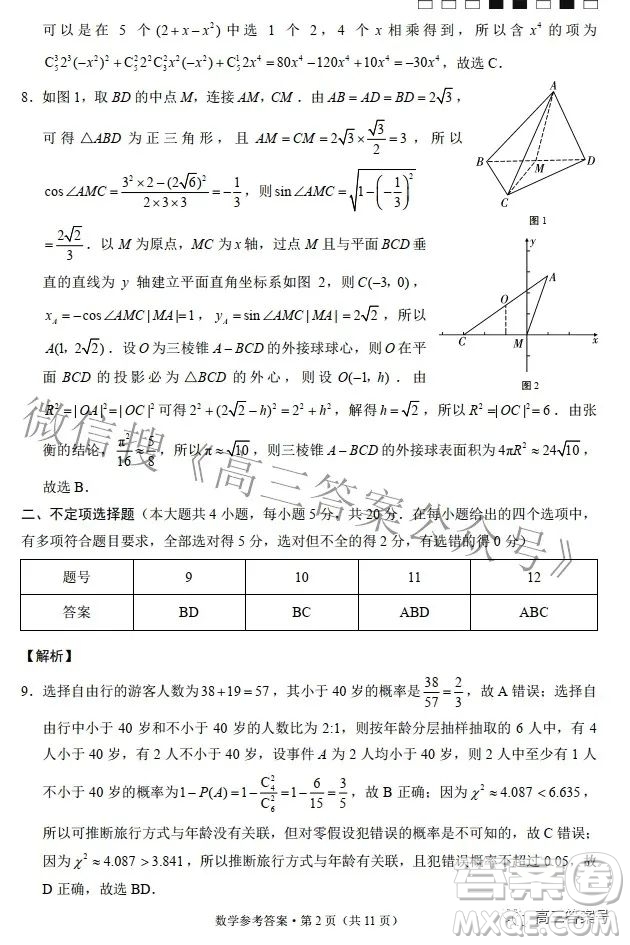 可以是在 5 个 (2+x−x²) 中选 1 个 2，4 个 x 相乘得到，所以含 x⁴ 的项为
C₅³2³(−x²)²+C₅²2²C₃²x²(−x²)+C₅¹2x⁴=80x⁴−120x⁴+10x⁴=−30x⁴，故选 C．
8．如图1，取 BD 的中点 M，连接 AM，CM．由 AB=AD=BD=2√3，
可得 △ABD 为正三角形，且 AM=CM=2√3×√3/2=3，所以
cos∠AMC=(3²×2−(2√6)²)/(2×3×3)=−1/3，则 sin∠AMC=√(1−(−1/3)²)
=2√2/3．以 M 为原点，MC 为 x 轴，过点 M 且与平面 BCD 垂
直的直线为 y 轴建立平面直角坐标系如图 2，则 C(−3，0)，
x_A=−cos∠AMC|MA|=1，y_A=sin∠AMC|MA|=2√2，所以
A(1，2√2)．设 O 为三棱锥 A−BCD 的外接球球心，则 O 在平
面 BCD 的投影必为 △BCD 的外心，则设 O(−1，h)．由
R²=|OA|²=|OC|² 可得 2²+(2√2−h)²=2²+h²，解得 h=√2，所以 R²=|OC|²=6．由张
衡的结论，π²/16≈5/8，所以 π≈√10，则三棱锥 A−BCD 的外接球表面积为 4πR²≈24√10，
故选 B．
A
B
D
M
C
图 1
y
A
O
C
M
x
图 2
二、不定项选择题（本大题共 4 小题，每小题 5 分，共 20 分．在每小题给出的四个选项中，
有多项符合题目要求，全部选对得 5 分，选对但不全的得 2 分，有选错的得 0 分）
题号 9 10 11 12
答案 BD BC ABD ABC
【解析】
9．选择自由行的游客人数为 38+19=57，其小于 40 岁的概率是 38/57=2/3，故 A 错误；选择自
由行中小于 40 岁和不小于 40 岁的人数比为 2:1，则按年龄分层抽样抽取的 6 人中，有 4
人小于 40 岁，有 2 人不小于 40 岁，设事件 A 为 2 人都小于 40 岁，则 2 人中至少有 1 人
不小于 40 岁的概率为 1−P(A)=1−C₄²/C₆²=1−6/15=3/5，故 B 正确；因为 χ²≈4.087<6.635，
所以可推断旅行方式与年龄没有关联，但对零假设犯错误的概率是不可知的，故 C 错误；
因为 χ²≈4.087>3.841，所以可推断旅行方式与年龄有关联，且犯错误概率不超过 0.05，故
D 正确，故选 BD．
数学参考答案·第 2 页（共 11 页）
微信搜《高三答案公众号》
答案圈
高三答案号
MXQE.COM